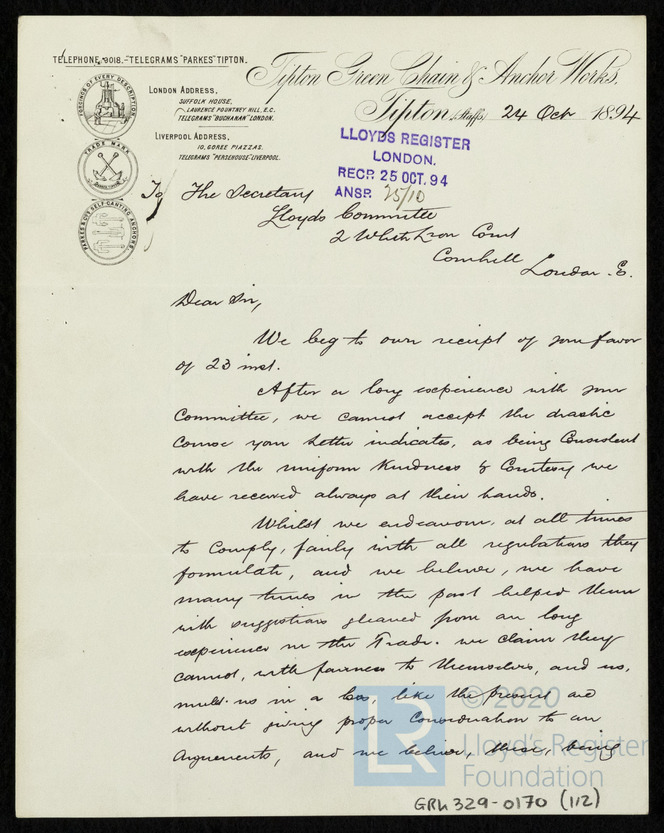 TELEPHONE, 3018.-TELEGRAMS "PARKES" TIPTON.
Tipton Green Chain & Anchor Works,
Tipton (Staffs) 24 Oct 1894
FORGINGS OF EVERY DESCRIPTION
TRADE MARK
PARKES & CO'S SELF-CANTING ANCHORS
LONDON ADDRESS,
SUFFOLK HOUSE,
LAURENCE POUNTNEY HILL, E.C.
TELEGRAMS "BUCHANAN" LONDON.
LIVERPOOL ADDRESS,
10, GOREE PIAZZAS.
TELEGRAMS "PERSEHOUSE" LIVERPOOL.
LLOYDS REGISTER
LONDON.
RECD. 25 OCT. 94
ANSD. 25/10
To The Secretary
Lloyds Committee
2 White Lion Court
Cornhill
London. E.
Dear Sir,
We beg to own receipt of your favor
of 23 inst.
After a long experience with your
Committee, we cannot accept the drastic
course your letter indicates, as being Consistent
with the uniform Kindness & Courtesy we
have received always at their hands.
Whilst we endeavour, at all times
to Comply, fairly with all regulations they
formulate, and we believe, we have
many times in the past helped them
with suggestions gleaned from our long
experience in the Trade. we claim they
cannot, with fairness to themselves, and us,
us in a case, like the present one
without giving proper Consideration to our
Arguements, and we believe, these, being
LR
© 2020
Lloyd's Register
Foundation
GRN329-0170 (1/2)